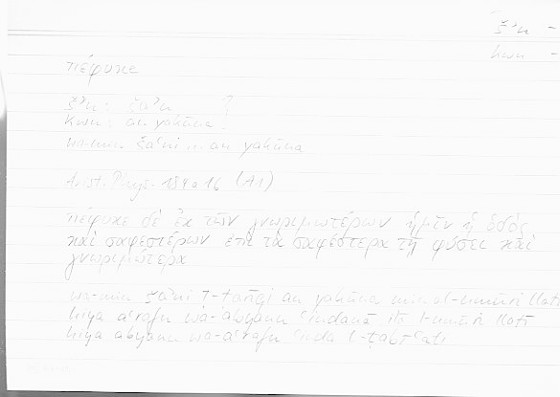 šʾn –
kwn –
πέφυκε
šʾn : šaʾn }
kwn : an yakūna
wa-min šaʾni ... an yakūna
Arist. Phys. 184a16 (A1)
πέφυκε δὲ ἐκ τῶν γνωριμωτέρων ἡμῖν ἡ ὁδὸς
καὶ σαφεστέρων ἐπὶ τὰ σαφέστερα τῇ φύσει καὶ
γνωριμώτερα
wa-min šaʾni l-ṭarīqi an yakūna mina l-umūri llatī
hiya aʿrafu wa-abyanu ʿindanā ilā l-umūri llatī
hiya abyanu wa-aʿrafu ʿinda l-ṭabīʿati